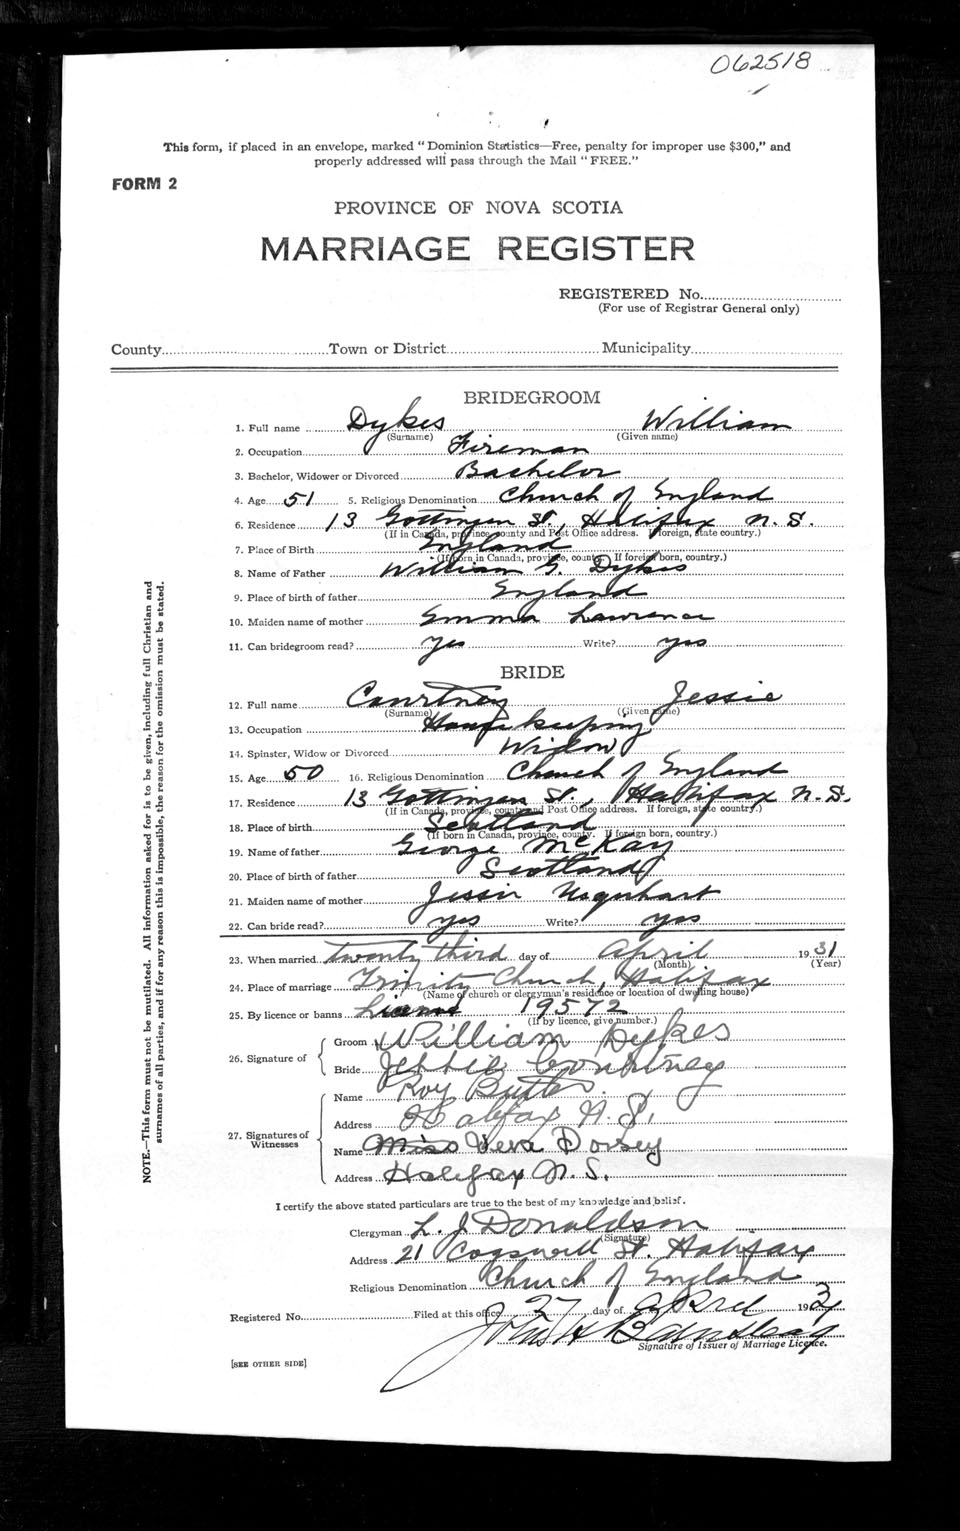 062518
This form, if placed in an envelope, marked "Dominion Statistics—Free, penalty for improper use $300," and
properly addressed will pass through the Mail "FREE."
FORM 2
PROVINCE OF NOVA SCOTIA
MARRIAGE REGISTER
REGISTERED No.
(For use of Registrar General only)
County Town or District Municipality
BRIDEGROOM
1. Full name Dykes William
(Surname) (Given name)
2. Occupation Fireman
3. Bachelor, Widower or Divorced Bachelor
4. Age 51 5. Religious Denomination Church of England
6. Residence 13 Gottingen St., Halifax N.S.
(If in Canada, province, county and Post Office address. If foreign, state country.)
7. Place of Birth England
(If born in Canada, province, county. If foreign born, country.)
8. Name of Father William G. Dykes
9. Place of birth of father England
10. Maiden name of mother Emma Lawrence
11. Can bridegroom read? yes Write? yes
BRIDE
12. Full name Courtney Jessie
(Surname) (Given name)
13. Occupation Housekeeping
14. Spinster, Widow or Divorced Widow
15. Age 50 16. Religious Denomination Church of England
17. Residence 13 Gottingen St., Halifax N.S.
(If in Canada, province, county and Post Office address. If foreign, state country.)
18. Place of birth Scotland
(If born in Canada, province, county. If foreign born, country.)
19. Name of father George McKay
20. Place of birth of father Scotland
21. Maiden name of mother Jessie Urquhart
22. Can bride read? yes Write? yes
23. When married twenty third day of April 1931
(Month) (Year)
24. Place of marriage Trinity Church, Halifax
(Name of church or clergyman's residence or location of dwelling house)
25. By licence or banns License 19572
(If by licence, give number.)
26. Signature of
Groom William Dykes
Bride Jessie Courtney
27. Signatures of Witnesses
Name Roy Butler
Address Halifax N.S.
Name Miss Vera Dorsey
Address Halifax N.S.
I certify the above stated particulars are true to the best of my knowledge and belief.
Clergyman L. J. Donaldson
(Signature)
Address 21 Cogswell St. Halifax
Religious Denomination Church of England
Registered No. Filed at this office 27 day of April 193
John H
Signature of Issuer of Marriage Licence.
[SEE OTHER SIDE]
NOTE.—This form must not be mutilated. All information asked for is to be given, including full Christian and
surnames of all parties, and if for any reason this is impossible, the reason for the omission must be stated.